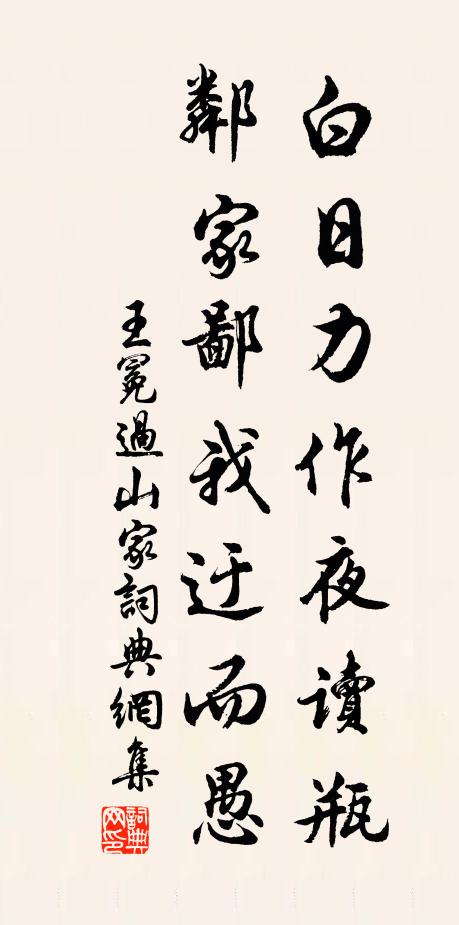 白日力作夜讀瓶
鄰家鄙我迂而愚
王冕過山家詞典網集
詞典
网印